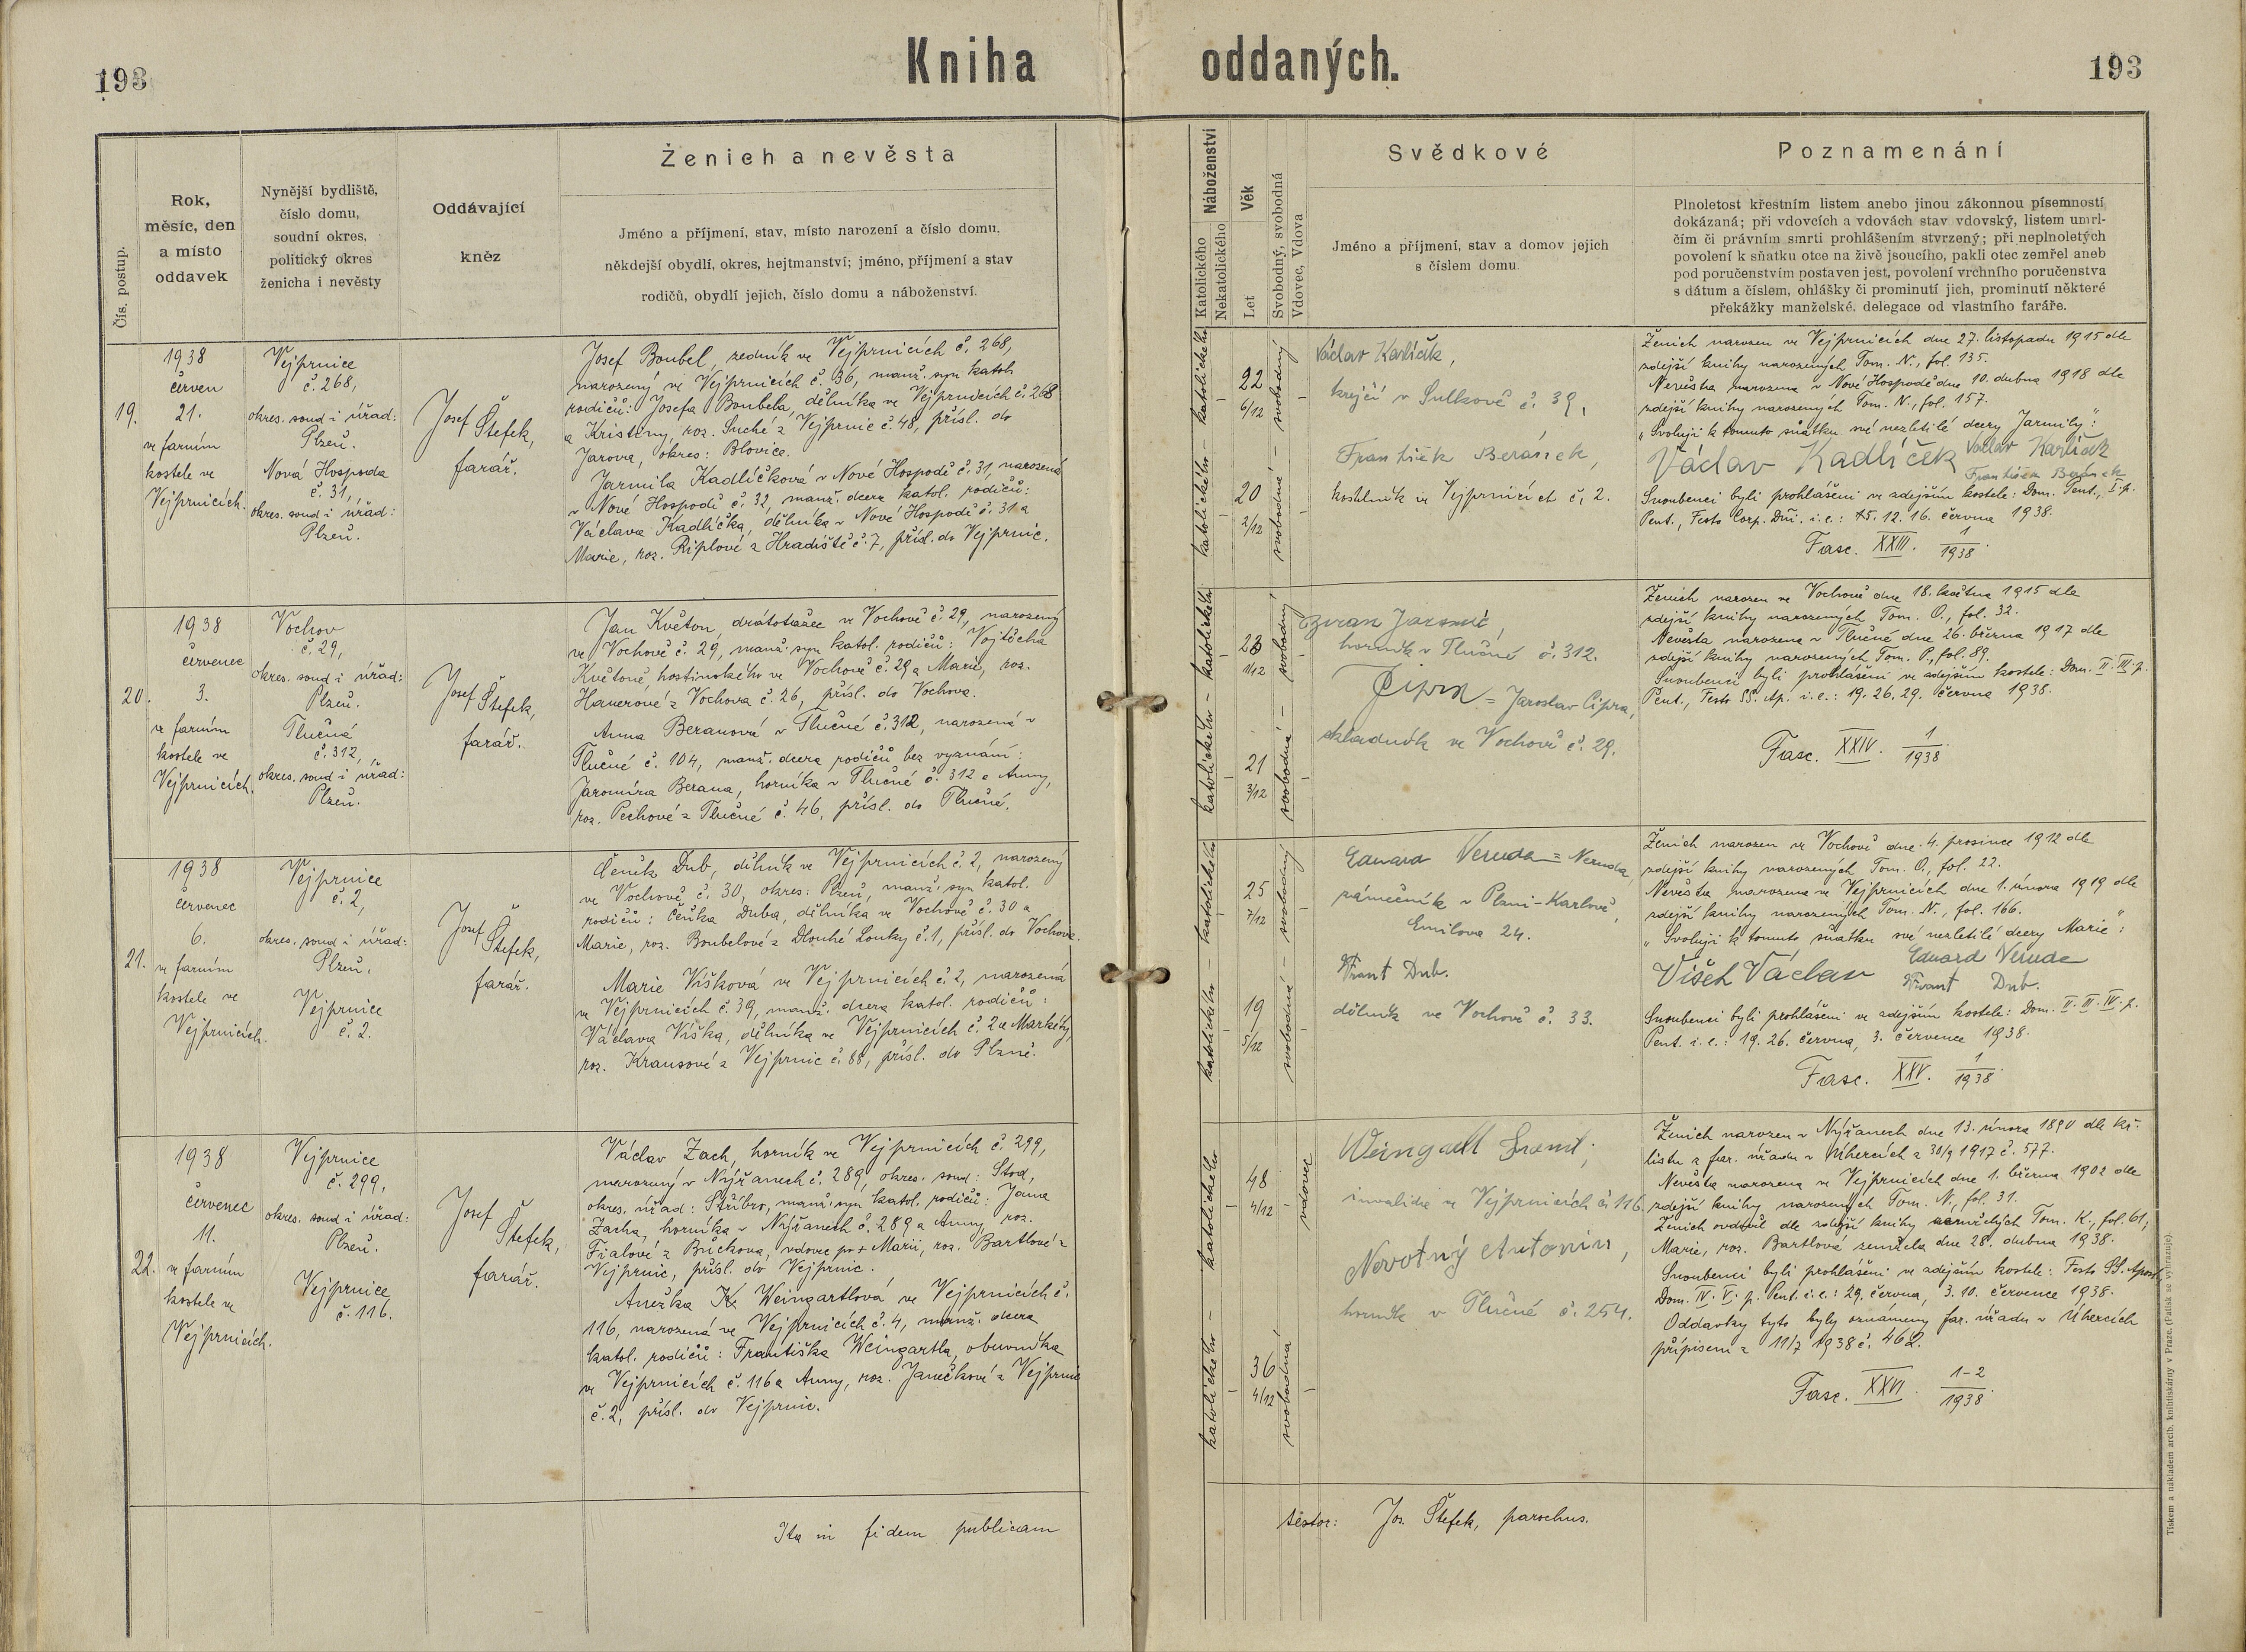 193
Kniha oddaných.
193
Čís. postup.
Rok,
měsíc, den
a místo
oddavek
Nynější bydliště,
číslo domu,
soudní okres,
politický okres
ženicha i nevěsty
Oddávající
kněz
Ženich a nevěsta
Jméno a příjmení, stav, místo narození a číslo domu,
někdejší obydlí, okres, hejtmanství; jméno, příjmení a stav
rodičů, obydlí jejich, číslo domu a náboženství.
Náboženství
Katolického
Nekatolického
Věk
Let
Svobodný, svobodná
Vdovec, Vdova
Svědkové
Jméno a příjmení, stav a domov jejich
s číslem domu.
Poznamenání
Plnoletost křestním listem anebo jinou zákonnou písemností
dokázaná; při vdovcích a vdovách stav vdovský, listem umrl-
čím či právním smrti prohlášením stvrzený; při neplnoletých
povolení k sňatku otce na živě jsoucího, pakli otec zemřel aneb
pod poručenstvím postaven jest, povolení vrchního poručenstva
s dátum a číslem, ohlášky či prominutí jich, prominutí některé
překážky manželské, delegace od vlastního faráře.
19.
1938
červen
21.
ve farním
kostele ve
Vejprnicích.
Vejprnice
č. 268,
okres. soud i úřad:
Plzeň.
Nová Hospoda
č. 31,
okres. soud i úřad:
Plzeň.
Josef
Štefek,
farář.
Josef Boubel, zedník ve Vejprnicích č. 268,
narozený ve Vejprnicích č. 36, manž. syn katol.
rodičů: Josefa Boubela, dělníka ve Vejprnicích č. 268
a Kristiny, roz. Suché z Vejprnic č. 48, přísl. do
Jarova, okres: Blovice.
Jarmila Kadlíčková v Nové Hospodě č. 31, narozená
v Nové Hospodě č. 32, manž. dcera katol. rodičů:
Václava Kadlíčka, dělníka v Nové Hospodě č. 31 a
Marie, roz. Riplové z Hradiště č. 7, přísl. do Vejprnic.
katolického – katolického
22
6/12
20
2/12
svobodná – svobodný
Václav Karlíček,
krejčí v Sulkově č. 39,
František Beránek,
kostelník ve Vejprnicích č. 2.
Ženich narozen ve Vejprnicích dne 27. listopadu 1915 dle
zdejší knihy narozených Tom. N., fol. 135.
Nevěsta narozena v Nové Hospodě dne 10. dubna 1918 dle
zdejší knihy narozených Tom. N., fol. 157.
„Svoluji k tomuto sňatku své nezletilé dcery Jarmily":
Václav Kadlíček Václav Karlíček
František Beránek
Snoubenci byli prohlášeni ve zdejším kostele: Dom. Pent., I. p.
Pent., Festo Corp. Dñi. i. e.: 15. 12. 16. června 1938.
Fasc. XXIII. 1/1938.
20.
1938
červenec
3.
ve farním
kostele ve
Vejprnicích.
Vochov
č. 29,
okres. soud i úřad:
Plzeň.
Tlučná
č. 312,
okres. soud i úřad:
Plzeň.
Josef
Štefek,
farář.
Jan Květon, drátotažec ve Vochově č. 29, narozený
ve Vochově č. 29, manž. syn katol. rodičů: Vojtěcha
Květoně, hostinského ve Vochově č. 29 a Marie, roz.
Hanerové z Vochova č. 26, přísl. do Vochova.
Anna Beranová v Tlučné č. 312, narozená v
Tlučné č. 104, manž. dcera rodičů bez vyznání:
Jaromíra Berana, horníka v Tlučné č. 312 a Anny,
roz. Pechové z Tlučné č. 46, přísl. do Tlučné.
katolického – katolického
23
1/12
21
3/12
svobodná – svobodný
horník v Tlučné č. 312.
Čipra = Jaroslav Čipra,
skladník ve Vochově č. 29.
Ženich narozen ve Vochově dne 18. května 1915 dle
zdejší knihy narozených Tom. O., fol. 32.
Nevěsta narozena v Tlučné dne 26. března 1917 dle
zdejší knihy narozených Tom. P., fol. 89.
Snoubenci byli prohlášeni ve zdejším kostele: Dom. II. III. p.
Pent., Festo SS. Ap. i. e.: 19. 26. 29. června 1938.
Fasc. XXIV. 1/1938
21.
1938
červenec
6.
ve farním
kostele ve
Vejprnicích.
Vejprnice
č. 2,
okres. soud i úřad:
Plzeň.
Vejprnice
č. 2.
Josef
Štefek,
farář.
Čeněk Dub, dělník ve Vejprnicích č. 2, narozený
ve Vochově č. 30, okres: Plzeň, manž. syn katol.
rodičů: Čeňka Duba, dělníka ve Vochově č. 30 a
Marie, roz. Boubelové z Dlouhé Louky č. 1, přísl. do Vochova.
Marie Víšková ve Vejprnicích č. 2, narozená
ve Vejprnicích č. 39, manž. dcera katol. rodičů:
Václava Víška, dělníka ve Vejprnicích č. 2 a Markéty,
roz. Krausové z Vejprnic č. 88, přísl. do Plzně.
katolického – katolického
25
7/12
19
5/12
svobodná – svobodný
Eduard Neruda = Neruda,
zámečník v Plzni-Karlově,
Emilova 24.
Frant Dub.
dělník ve Vochově č. 33.
Ženich narozen ve Vochově dne 4. prosince 1912 dle
zdejší knihy narozených Tom. O., fol. 22.
Nevěsta narozena ve Vejprnicích dne 1. února 1919 dle
zdejší knihy narozených Tom. N., fol. 166.
„Svoluji k tomuto sňatku své nezletilé dcery Marie":
Víšek Václav Eduard Neruda
Frant Dub.
Snoubenci byli prohlášeni ve zdejším kostele: Dom. II. III. IV. p.
Pent. i. e.: 19. 26. června, 3. července 1938.
Fasc. XXV. 1/1938
22.
1938
červenec
11.
ve farním
kostele ve
Vejprnicích.
Vejprnice
č. 299,
okres. soud i úřad:
Plzeň.
Vejprnice
č. 116.
Josef
Štefek,
farář.
Václav Zach, horník ve Vejprnicích č. 299,
narozený v Nýřanech č. 289, okres. soud: Stod,
okres. úřad: Stříbro, manž. syn katol. rodičů: Jana
Zacha, horníka v Nýřanech č. 289 a Anny, roz.
Fialové z Bučkova, vdovec po + Marii, roz. Bartlové z
Vejprnic, přísl. do Vejprnic.
Anežka Weingartlová ve Vejprnicích č.
116, narozená ve Vejprnicích č. 4, manž. dcera
katol. rodičů: Františka Weingartla, obuvníka
ve Vejprnicích č. 116 a Anny, roz. Janečkové z Vejprnic
č. 2, přísl. do Vejprnic.
katolického – katolického
48
4/12
36
4/12
svobodná vdovec
Weingartl Frant,
invalida ve Vejprnicích č. 116.
Novotný Antonín,
horník v Tlučné č. 254.
Ženich narozen v Nýřanech dne 13. února 1890 dle kř.
listu z far. úřadu v Úhercích z 30/9 1917 č. 577.
Nevěsta narozena ve Vejprnicích dne 1. března 1902 dle
zdejší knihy narozených Tom. N., fol. 31.
Ženich ovdověl dle zdejší knihy zemřelých Tom. K., fol. 61;
Marie, roz. Bartlová zemřela dne 28. dubna 1938.
Snoubenci byli prohlášeni ve zdejším kostele: Festo SS. Apost.
Dom. IV. V. p. Pent. i. e.: 29. června, 3. 10. července 1938.
Oddavky tyto byly oznámeny far. úřadu v Úhercích
přípisem z 11/7 1938 č. 462.
Fasc. XXVI. 1-2/1938.
Ita in fidem publicam
testor: Jos. Štefek, parochus.
Tiskem a nákladem arcib. knihtiskárny v Praze. (Patisk se vyhrazuje).